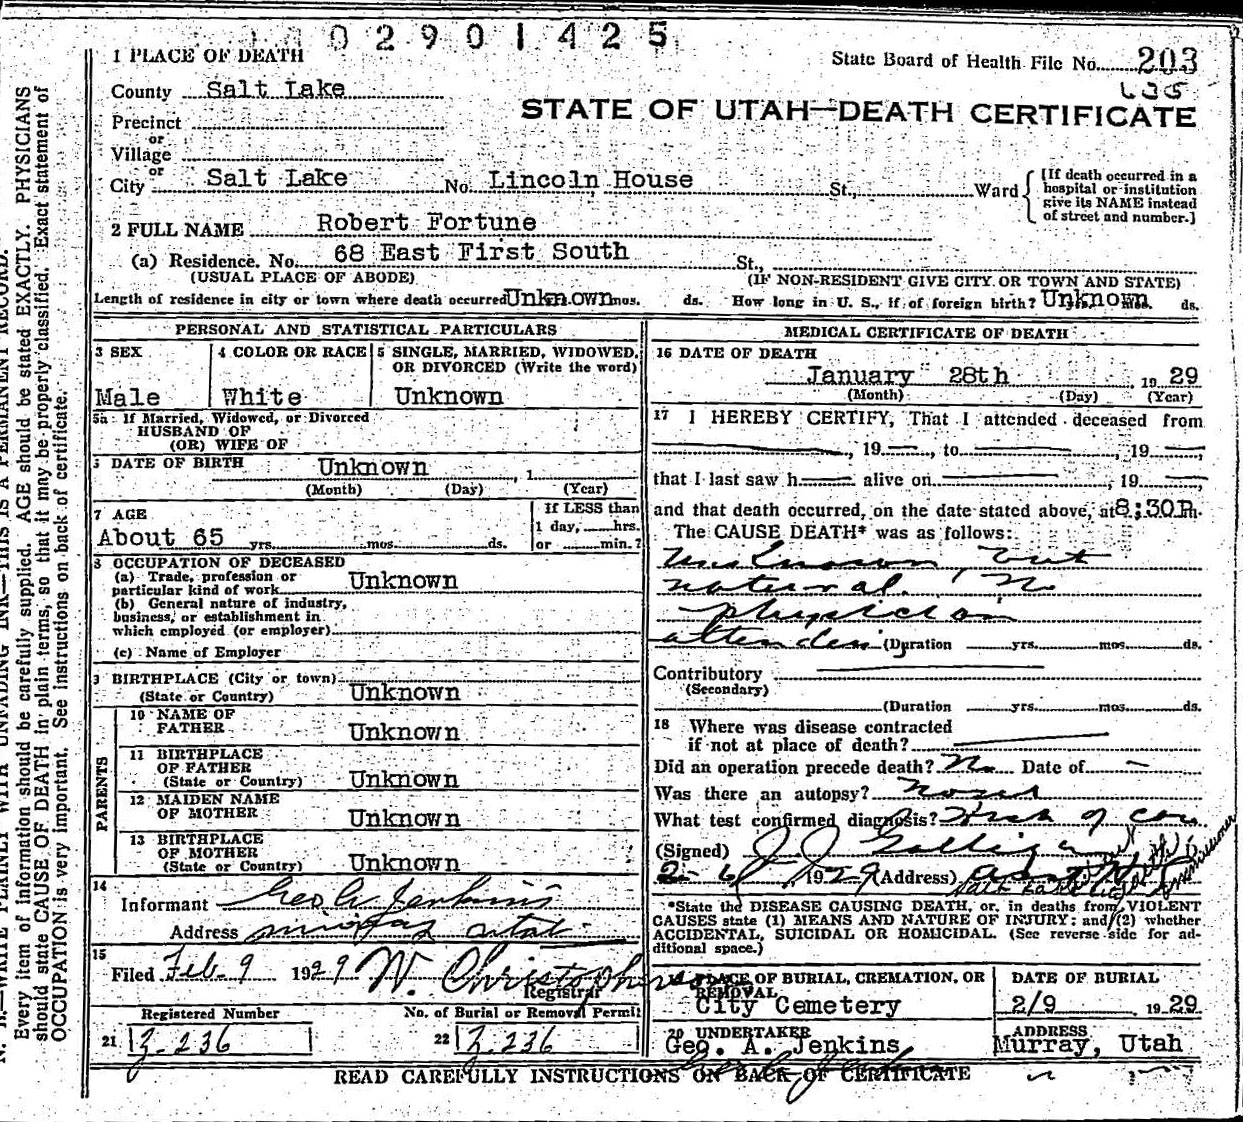 02901425
1 PLACE OF DEATH
State Board of Health File No. 203
County Salt Lake
STATE OF UTAH—DEATH CERTIFICATE
Precinct
or
Village
or
City Salt Lake No. Lincoln House St., Ward
[If death occurred in a
hospital or institution
give its NAME instead
of street and number.]
2 FULL NAME Robert Fortune
(a) Residence. No. 68 East First South St.,
(USUAL PLACE OF ABODE) (IF NON-RESIDENT GIVE CITY OR TOWN AND STATE)
Length of residence in city or town where death occurred Unknown mos. ds. How long in U. S., if of foreign birth? Unknown ds.
PERSONAL AND STATISTICAL PARTICULARS
3 SEX
Male
4 COLOR OR RACE
White
5 SINGLE, MARRIED, WIDOWED,
OR DIVORCED (Write the word)
Unknown
5a If Married, Widowed, or Divorced
HUSBAND OF
(OR) WIFE OF
DATE OF BIRTH Unknown , 1
(Month) (Day) (Year)
7 AGE
About 65 yrs. mos. ds.
If LESS than
1 day, hrs.
or min.?
8 OCCUPATION OF DECEASED
(a) Trade, profession or
particular kind of work Unknown
(b) General nature of industry,
business, or establishment in
which employed (or employer)
(c) Name of Employer
9 BIRTHPLACE (City or town)
(State or Country) Unknown
PARENTS
10 NAME OF
FATHER Unknown
11 BIRTHPLACE
OF FATHER
(State or Country) Unknown
12 MAIDEN NAME
OF MOTHER Unknown
13 BIRTHPLACE
OF MOTHER
(State or Country) Unknown
14
Informant Geo A Jenkins
Address
15
Filed Feb 9 1929 W. Christopherson
Registrar
Registered Number
21 Z-236
No. of Burial or Removal Permit
22 Z.236
MEDICAL CERTIFICATE OF DEATH
16 DATE OF DEATH
January 28th 1929
(Month) (Day) (Year)
17 I HEREBY CERTIFY, That I attended deceased from
, 19 , to , 19 ,
that I last saw h alive on , 19
and that death occurred, on the date stated above, at 8:30 P.m.
The CAUSE DEATH* was as follows:
Unknown, but
natural. No
physician
attending (Duration yrs. mos. ds.
Contributory
(Secondary)
(Duration yrs. mos. ds.
18 Where was disease contracted
if not at place of death?
Did an operation precede death? No Date of —
Was there an autopsy? None
What test confirmed diagnosis?
(Signed) J J Galligan
2-6, 1929 (Address)
*State the DISEASE CAUSING DEATH, or, in deaths from VIOLENT
CAUSES state (1) MEANS AND NATURE OF INJURY; and (2) whether
ACCIDENTAL, SUICIDAL OR HOMICIDAL. (See reverse side for ad-
ditional space.)
PLACE OF BURIAL, CREMATION, OR
REMOVAL
City Cemetery
DATE OF BURIAL
2/9 1929
20 UNDERTAKER
Geo. A. Jenkins
ADDRESS
Murray, Utah
READ CAREFULLY INSTRUCTIONS ON BACK OF CERTIFICATE
N. B.—WRITE PLAINLY WITH UNFADING INK—THIS IS A PERMANENT RECORD.
Every item of information should be carefully supplied. AGE should be stated EXACTLY. PHYSICIANS
should state CAUSE OF DEATH in plain terms, so that it may be properly classified. Exact statement of
OCCUPATION is very important. See instructions on back of certificate.